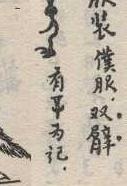 服装僕服。双臂。
有耳为记.